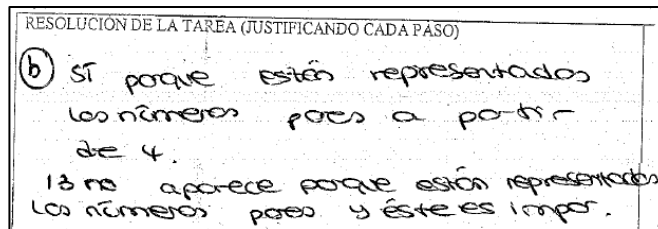 RESOLUCIÓN DE LA TAREA (JUSTIFICANDO CADA PASO)
b) SÍ porque están representados
los números pares a partir
de 4.
13 no aparece porque están representados
los números pares y éste es impar.